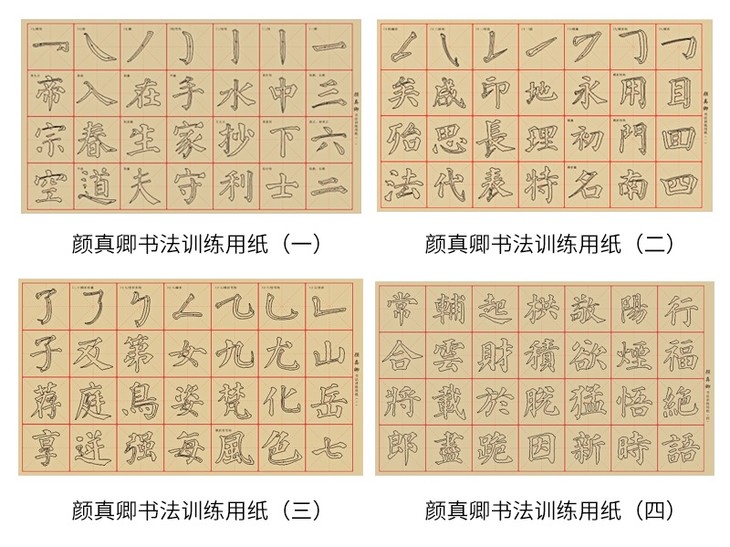 帝 入 在 手 水 中 三
宗 春 生 家 抄 下 六
空 道 夫 守 利 士 二
颜真卿书法训练用纸（一）
矣 咸 印 地 永 用 目
殆 思 長 理 初 門 回
法 代 表 特 名 南 四
颜真卿书法训练用纸（二）
子 及 第 女 九 尤 山
蒋 庭 鳥 姿 梵 化 岳
享 逆 强 每 風 色 七
颜真卿书法训练用纸（三）
常 輔 起 栱 敬 陽 行
合 雲 財 積 欲 煙 福
將 載 於 脱 猛 悟 絕
郎 盡 跪 因 新 時 語
颜真卿书法训练用纸（四）